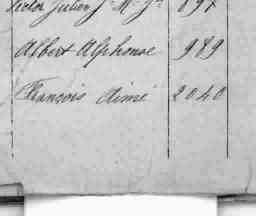 Victor Julien J. M. J. 897
Albert Alphonse 989
François Aimé 2040